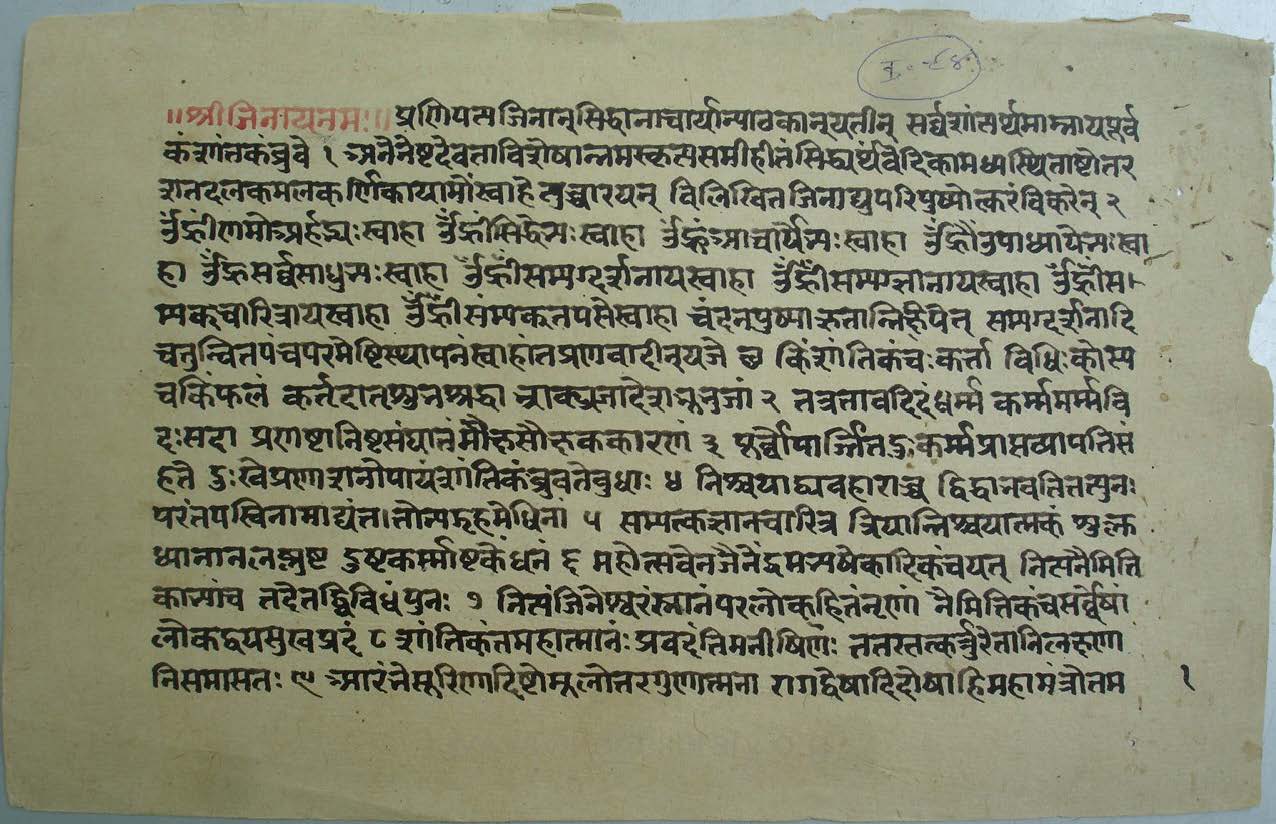 ॥श्रीजिनायनमः॥ प्रणिपत्यजिनान्सिद्धानाचार्यान्पावकान्यतीन् सर्व्वशांत्यर्थमाम्नायपूर्व
कंशांतकंब्रुवे १ अनेनेष्टदेवताविशेषान्नमस्कृत्यसमीहीतंसिद्ध्यर्थंवेदिकामध्यस्थिताष्टोतर
शतदलकमलकर्णिकायामोंस्वाहेत्युच्चारयन् विलिखितजिनाद्युपरिपुष्पोत्करंविकरेन् २
ॐह्रींणमोअर्हद्भ्यःस्वाहा ॐह्रींसिद्धेभ्यःस्वाहा ॐह्रूंआचार्येभ्यःस्वाहा ॐह्रौंउपाध्यायेभ्यःस्वा
हा ॐह्रःसर्व्वसाधुभ्यःस्वाहा ॐह्रींसम्यग्दर्शनायस्वाहा ॐह्रींसम्यग्ज्ञानायस्वाहा ॐह्रींस
म्यक्चारित्रायस्वाहा ॐह्रींसंम्यक्तपसेस्वाहा चंदनपुष्पाक्षतान्निक्षिपेत् सम्यग्दर्शनादि
चतुन्वितपंचपरमेष्टिस्थापनंस्वाहांतप्राणवादीन्यजे छ किंशांतिकंचःकर्त्ता विधिःकोस्य
चकिंफलं कर्त्त
२ तत्रतावदिदंधर्म्म कर्म्ममर्म्मवि
दःसदा प्रणष्टानिष्टसंघातं
कारणं ३ पूर्व्वोपार्जितदुःकर्म्मप्राप्तव्यापतिसं
हते दुःखेप्रणाशनोपायंशांतिकंब्रुवतेबुधाः ४ निश्चयाद्व्यवहाराच्च द्विद्दानवतितत्पुनः
परंतपस्विनामाद्यंत।तोन्यद्गृहमेधिना ५ सम्यत्कज्ञानचारित्र त्रियान्निश्चयात्मकं शुल्क
ध्यानानलप्लुष्ट दुष्टकर्म्माष्टकेंधनं ६ महोत्सवेनजैनेंद्रमभ्यषेकादिकंचयन् नित्यनैमिति
काभ्यांच तदेतद्विविधंपुनः ७ नित्यंजिनेश्वरंस्नानंपरलोकहितंनृणां नैमितिकंचसर्व्वेषां
लोकद्वयसुखप्रदं ८ शांतिकंतमहात्मानंः प्रवदंतिमनीषिणः ततस्तत्कर्त्तुरेतानिलक्षणा
निसमासतः ९ आरंभेसुरिणादिष्टोमुलोत्तरगुणात्मना रागद्वेषादिदोषाहिमहामंत्रोतम
१